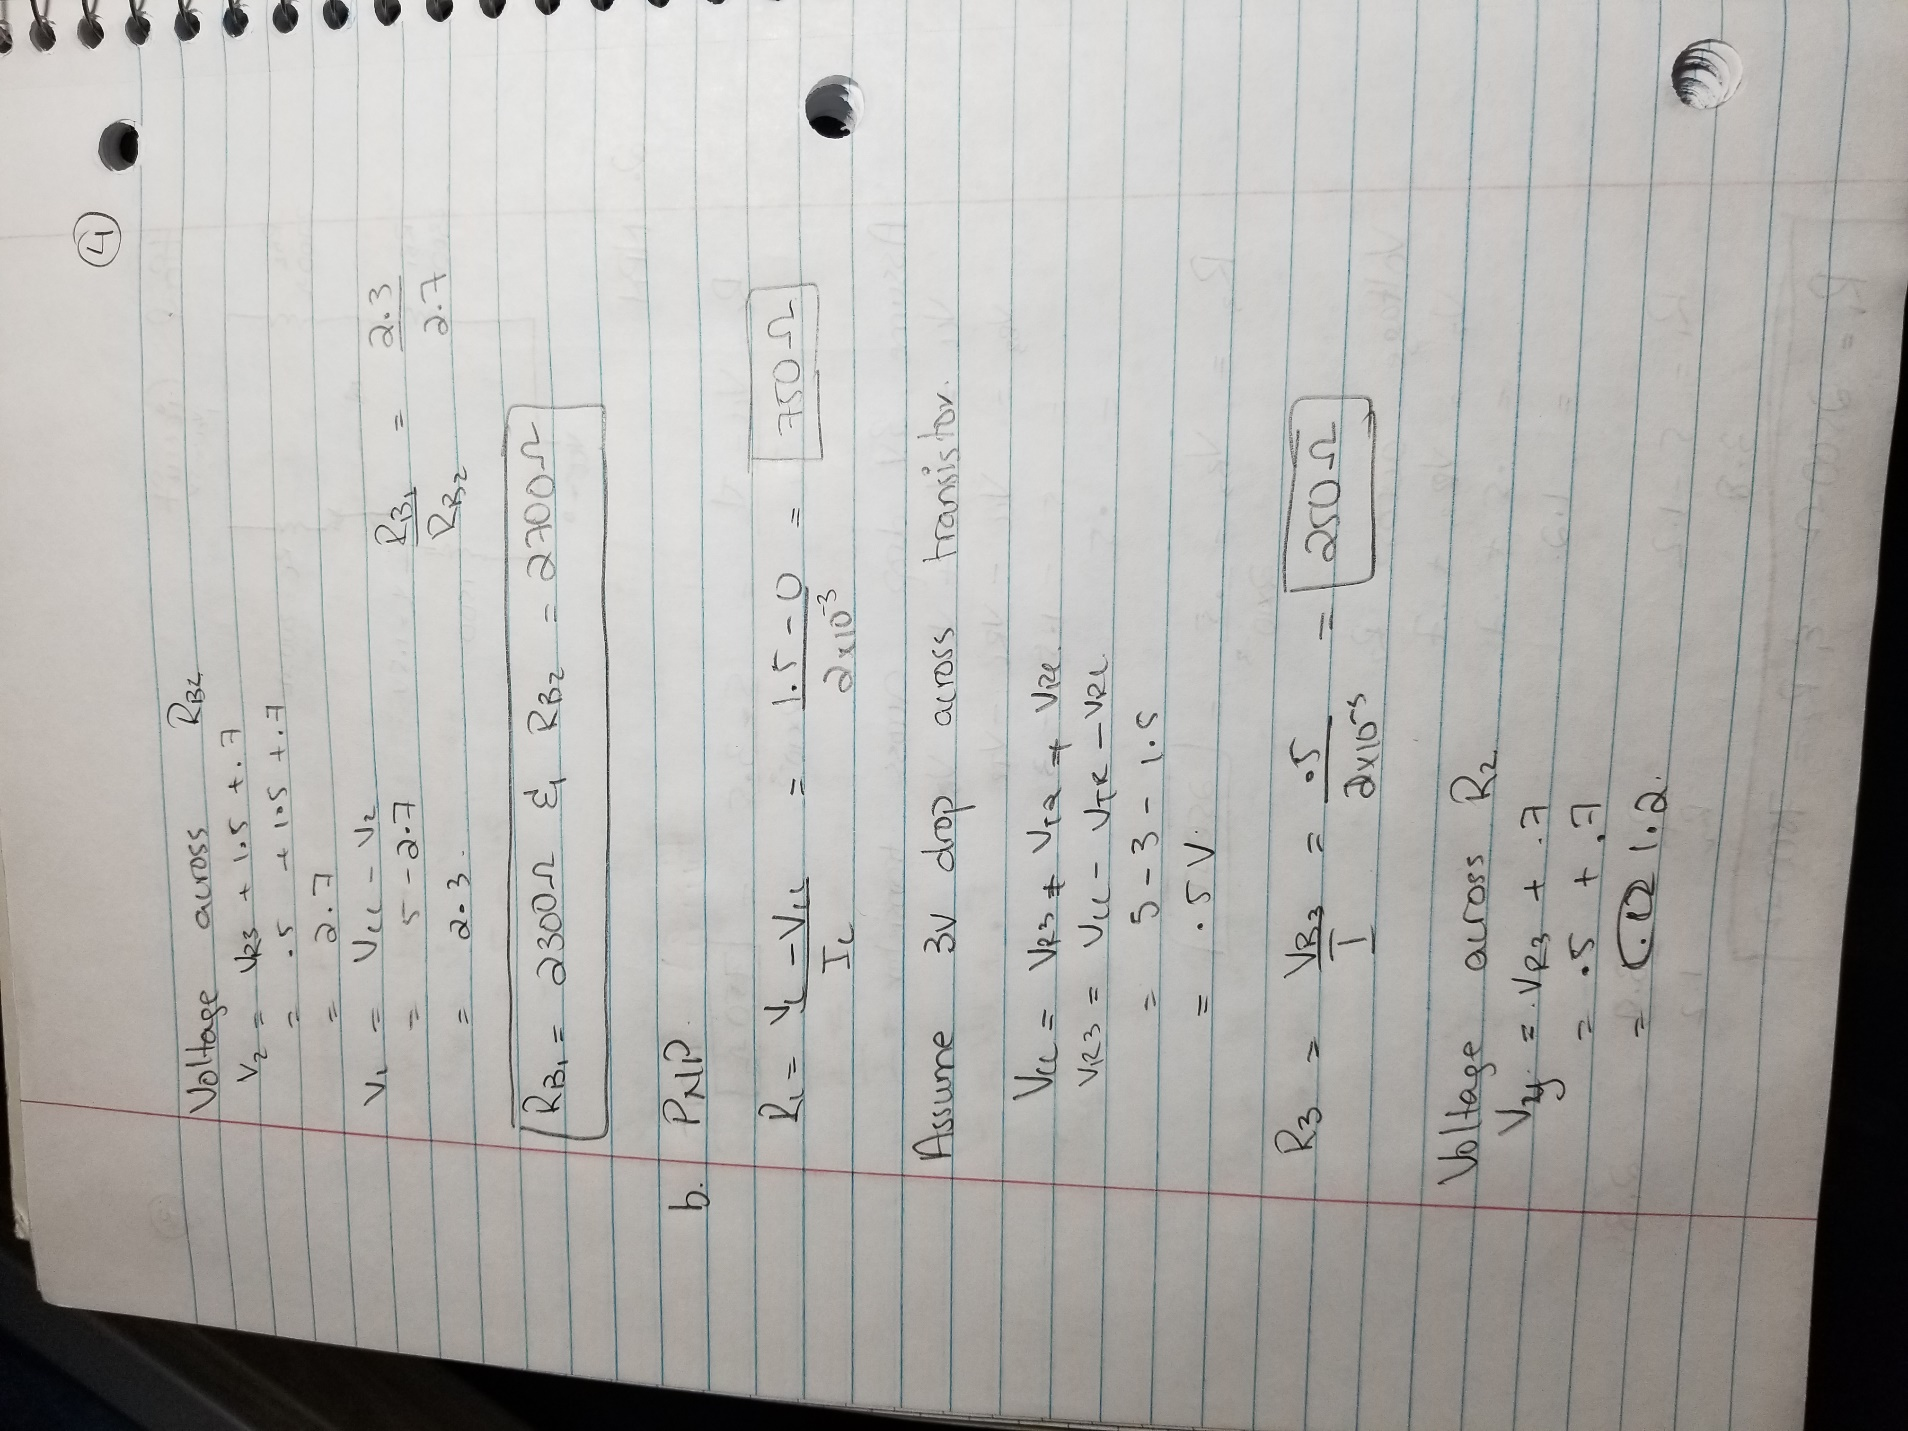 4
Voltage across RB2
V2 = VR3 + 1.5 + .7
= .5 + 1.5 + .7
= 2.7
V1 = VCC - V2
= 5 - 2.7
= 2.3.
RB1 / RB2 = 2.3 / 2.7
RB1 = 2300Ω & RB2 = 2700Ω
b. PNP.
RL = VL - VCC / IC = 1.5 - 0 / 2x10^-3 = 750Ω
Assume 3V drop across transistor.
VCC = VR3 + VTR + VRL.
VR3 = VCC - VTR - VRL
= 5 - 3 - 1.5
= .5V.
R3 = VR3 / I = .5 / 2x10^-3 = 250Ω
Voltage across R2
= VR3 + .7
= .5 + .7
= 1.2.